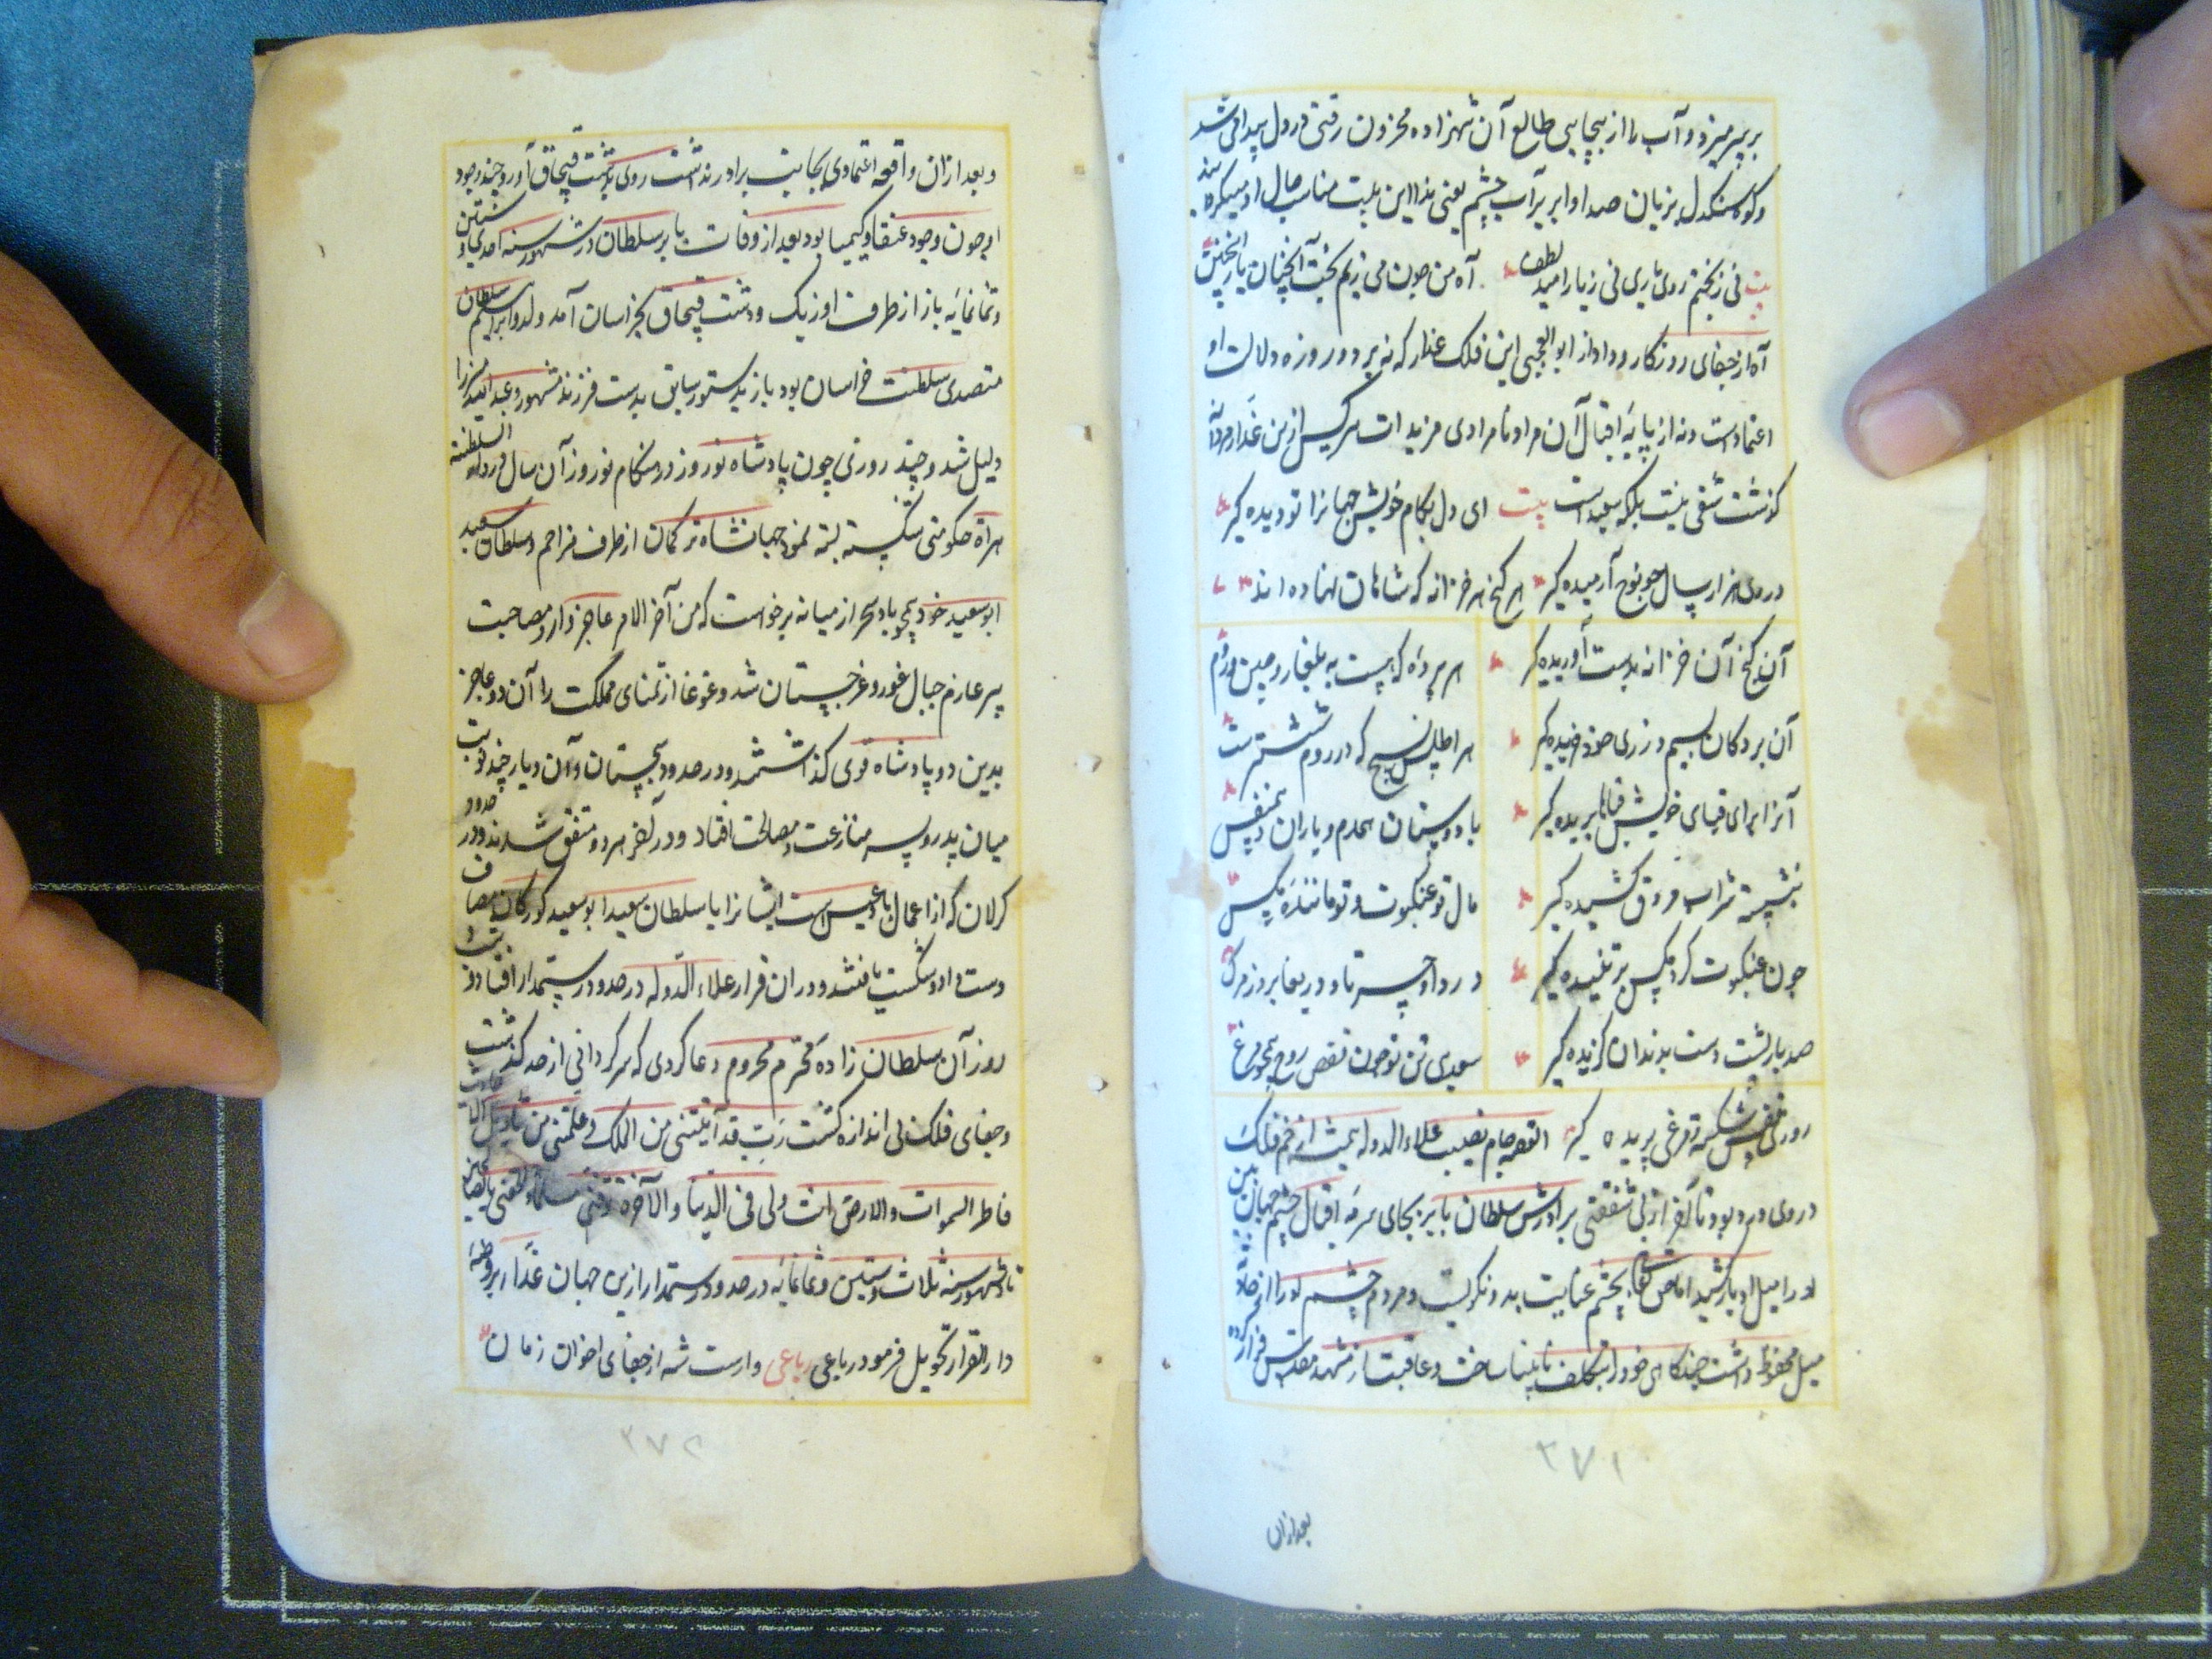 بر سر میزد و آب را از بیچابیی طالع آن شهزاده محزون رقتی در دل پیدا می شد
و کوه سنکدل بزبان صدا و ابر پر آب چشم یعنی ندا این بیت مناسب حال او میکردند
بیت نی ز بختم روی یاری نی ز یار امید لطف آه من چون می زیم بخت آنچنان یار اینچنین
آه از جفای روزکار و داد از ابو العجبی این فلک غدار که نه بر دور روزه دولت او
اعتمادست و نه از پایهٔ اقبال آن مراد نامرادی مزید است هر کس ازین غدار مردانه
کذشت شقی نیست بلکه سعید است بیت ای دل بکام خویش جهانرا تو دیده کیر
در وی هزار سال چو نوح آرمیده کیر هر کنج هر خزانه که شاهان نهاده اند
آن کنج آن خزانه بدست آوریده کیر هر برده که هست به بلغار و چین و روم
آن بردکان بسیم و زری خود خریده کیر هر اطلس نسیج که در روم ششترست
آنرا برای قبای خویش قباها بریده کیر با دوستان همدم و یاران همنفس
بنشسته شراب مروق کشیده کیر مال تو عنکبوت و تو مانندهٔ مکس
چون عنکبوت کرد مکس بر تنیده کیر دردا و حسرتا و دریغا بروز مرک
صد بار پشت دست بدندان کزیده کیر سعدی تن تو چون قفص روح همچو مرغ
روزی قفس شکسته و مرغی پریده کیر القصه جام نصیب علاء الدوله همیشه از خم فلک
دردی درد بود تا آخر از بی شفقتی برادرش سلطان بابر بجای سرمه اقبال چشم جهان بین
او را میل ادبار کشید اما صنع بچشم عنایت بدو نکریست و مردم چشم او را از حادثه
میل محفوظ داشت چندکاهی خود را بتکلف نابینا ساخت و عاقبت از مشهد مقدس فرار کرد
۳۷۱
بعد ازان
و بعد ازان واقعه اعتمادی بجانب برادر نداشت روی بدشت قبچاق آورد چند وجود
او چون وجود عنقا و کیمیا بود بعد از وفات بابر سلطان در شهور سنه احدی و ستین
و ثمانمائه باز از طرف اوزبک و دشت قبچاق بخراسان آمد و لدو ابراهیم سلطان
متصدی سلطنت خراسان بود باز بدستور سابق بدست فرزند مشهور و عبد میرزا
دلیل شد و چند روزی چون پادشاه نوروز در هنکام نوروز آن سال در دار السلطنه
هراة حکومتی شکسته بسته نمود جهانشاه ترکمان از طرف مزاحم و سلطان سعید
ابو سعید خود همچو باد سحر از میانه برخواست که من آخر الامر عاجزوار و مصاحبت
پسر عازم جبال غور و غرجستان شد و غوغا از تمنای مملکت را آن دو عاجز
بدین دو پادشاه قوی کذاشتند و در حدود سجستان و آن دیار چند نوبت
میان پدر و پسر منازعت و مصالحت افتاد و در آخر هر دو متفق شدند و در حدود
کرلان که از اعمال بادغیس است ایشانرا با سلطان سعید ابو سعید کورکان مصاف
دست داد و شکست یافتند و دران فرار علاء الدوله در حدود رستمدار افتاد و
روز آن سلطان زاده محترم محروم دعا کردی که سرکردانی از حد کذشت
و جفای فلک بی اندازه کشت رب قد آتیتنی من الملک و علمتنی من تأویل الاحادیث
فاطر السموات والارض انت ولی فی الدنیا والآخرة توفنی مسلما و الحقنی بالصالحین
تا در شهور سنه ثلاث و ستین و ثمانمائه در حدود رستمدار ازین جهان غدار بروضه
دار القرار تحویل فرمود رباعی رباعی وارست شه از جفای اخوان زمان
۳۷۲